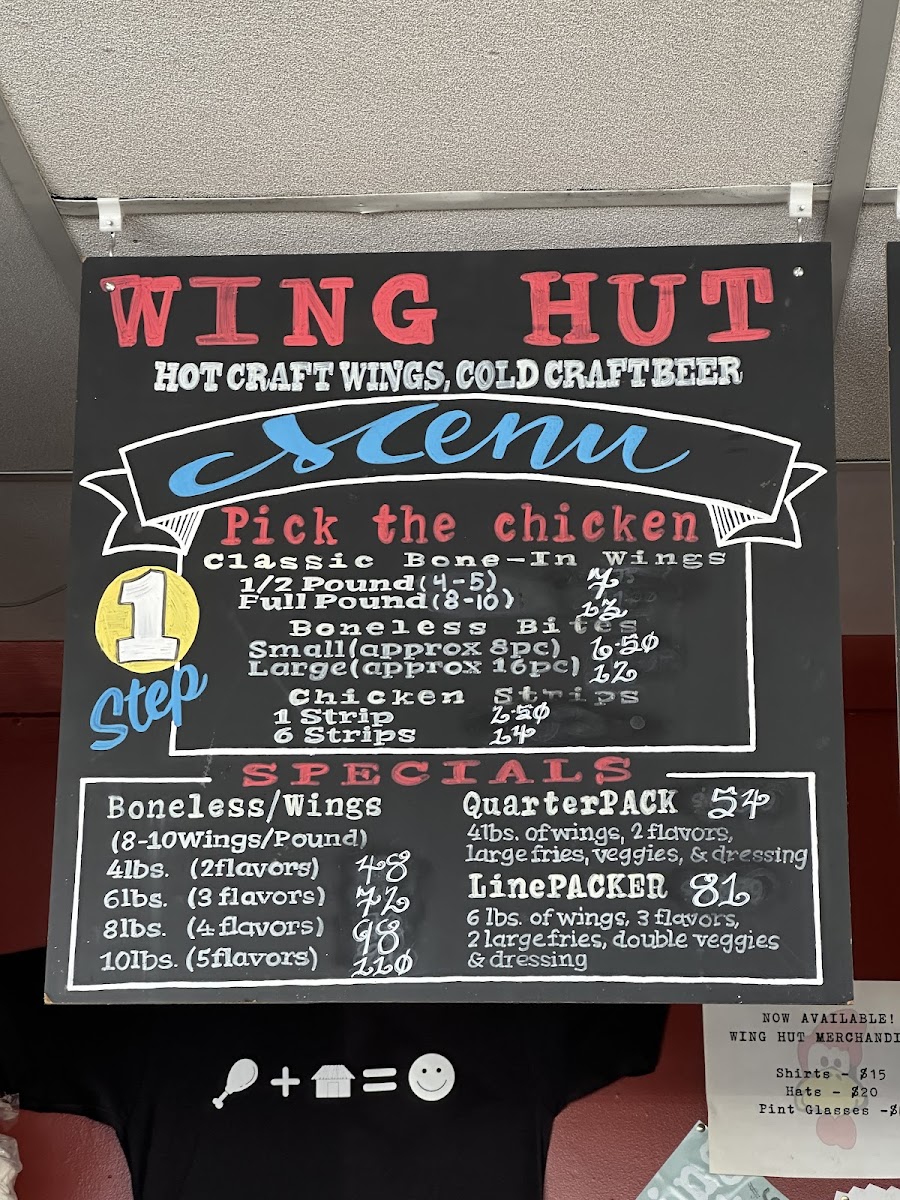 WING HUT
HOT CRAFT WINGS, COLD CRAFT BEER
Menu
Pick the chicken
Classic Bone-In Wings
1/2 Pound (4-5) 7
Full Pound (8-10) 13
Boneless Bites
Small (approx 8pc) 6.50
Large (approx 16pc) 12
Chicken Strips
1 Strip 2.50
6 Strips 14
1
Step
SPECIALS
Boneless/Wings
(8-10 Wings/Pound)
4lbs. (2 flavors) 48
6lbs. (3 flavors) 72
8lbs. (4 flavors) 98
10lbs. (5 flavors) 110
QuarterPACK 54
4lbs. of wings, 2 flavors,
large fries, veggies, & dressing
LinePACKER 81
6 lbs. of wings, 3 flavors,
2 large fries, double veggies
& dressing
NOW AVAILABLE!
WING HUT MERCHANDI
Shirts - $15
Hats - $20
Pint Glasses -$